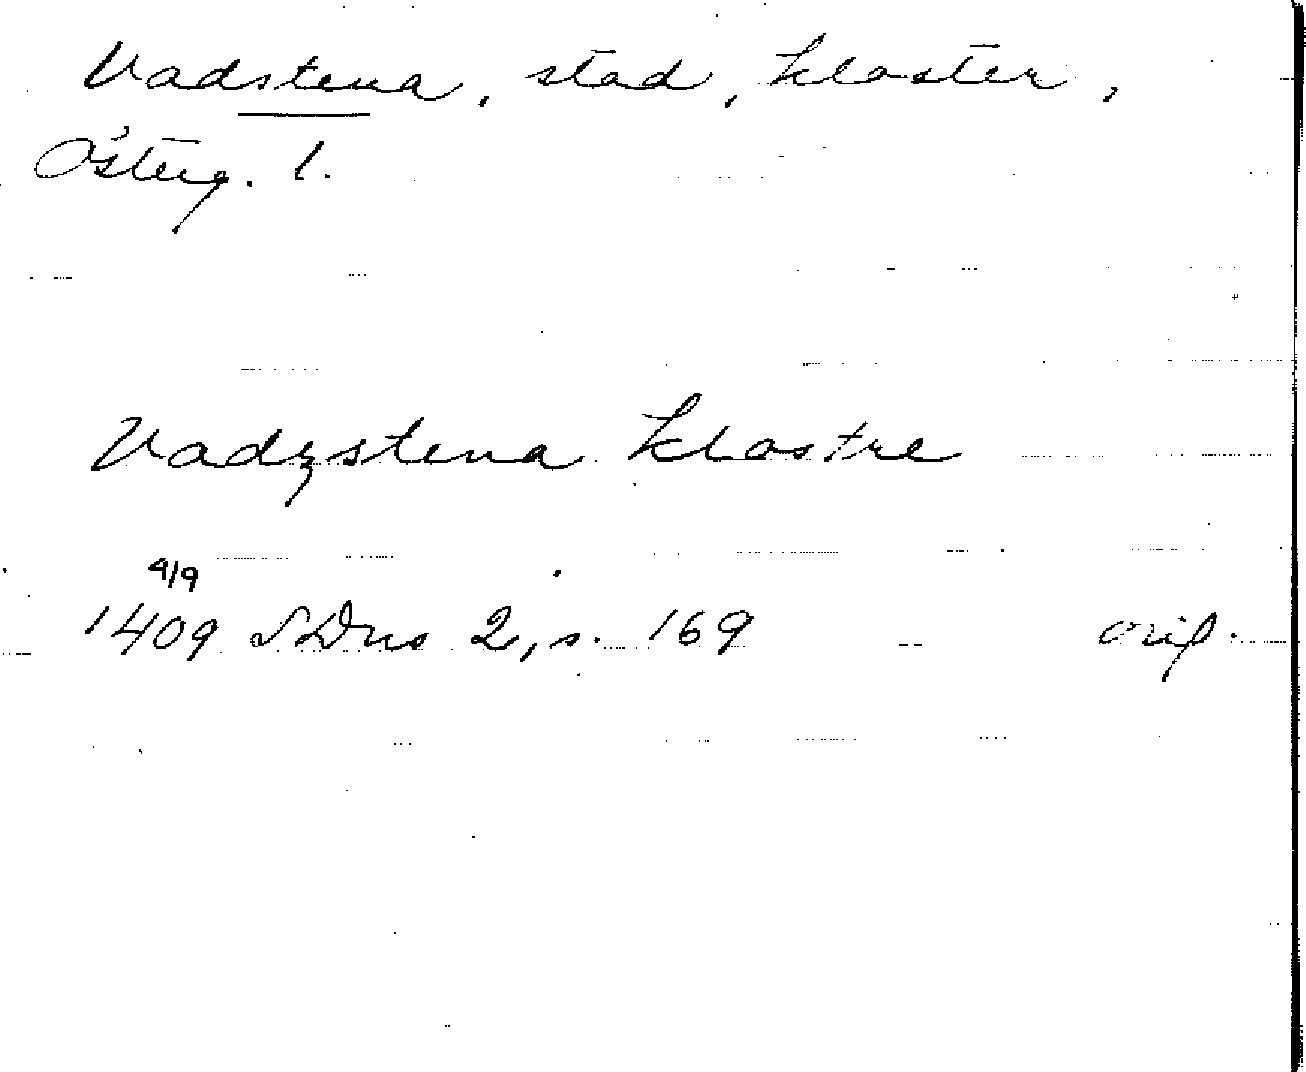 Vadstena, stad, kloster,
Österg. l.
Vadzstena klostre
4/9
1409 SDns 2, s. 169 orig.